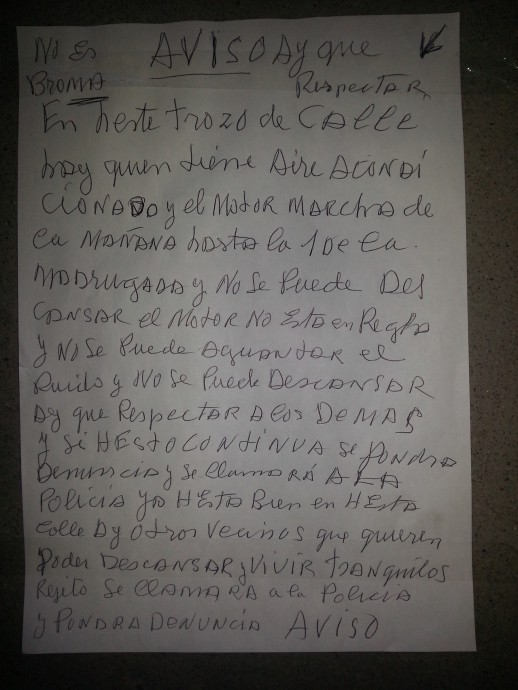 No Es AVISO Ay que
BROMA Respectar
En heste trozo de CALLE
hay quien tiene Aire ACONDI
CIONADO y el Motor MARCHA de
la MAÑANA hasta la 1 De la
MADRUGADA y No Se Puede DES
CANSAR el Motor NO ESta en Regla
y NO Se Puede AGUANTAR el
Ruido y NO Se Puede DESCANSAR
Ay que Respectar A los DEMAS
y Si HESTO CONTINUA Se PONDRA
Denuncia y Se llamARÁ A LA
POLICIA YA HESta Bien en HESta
Calle Ay otros Vecinos que quieren
Poder DESCANSAR y VIVIR tranquilos
Repito Se LLAMARA a la POLICIA
y PONDRA DENUNCIA AVISO